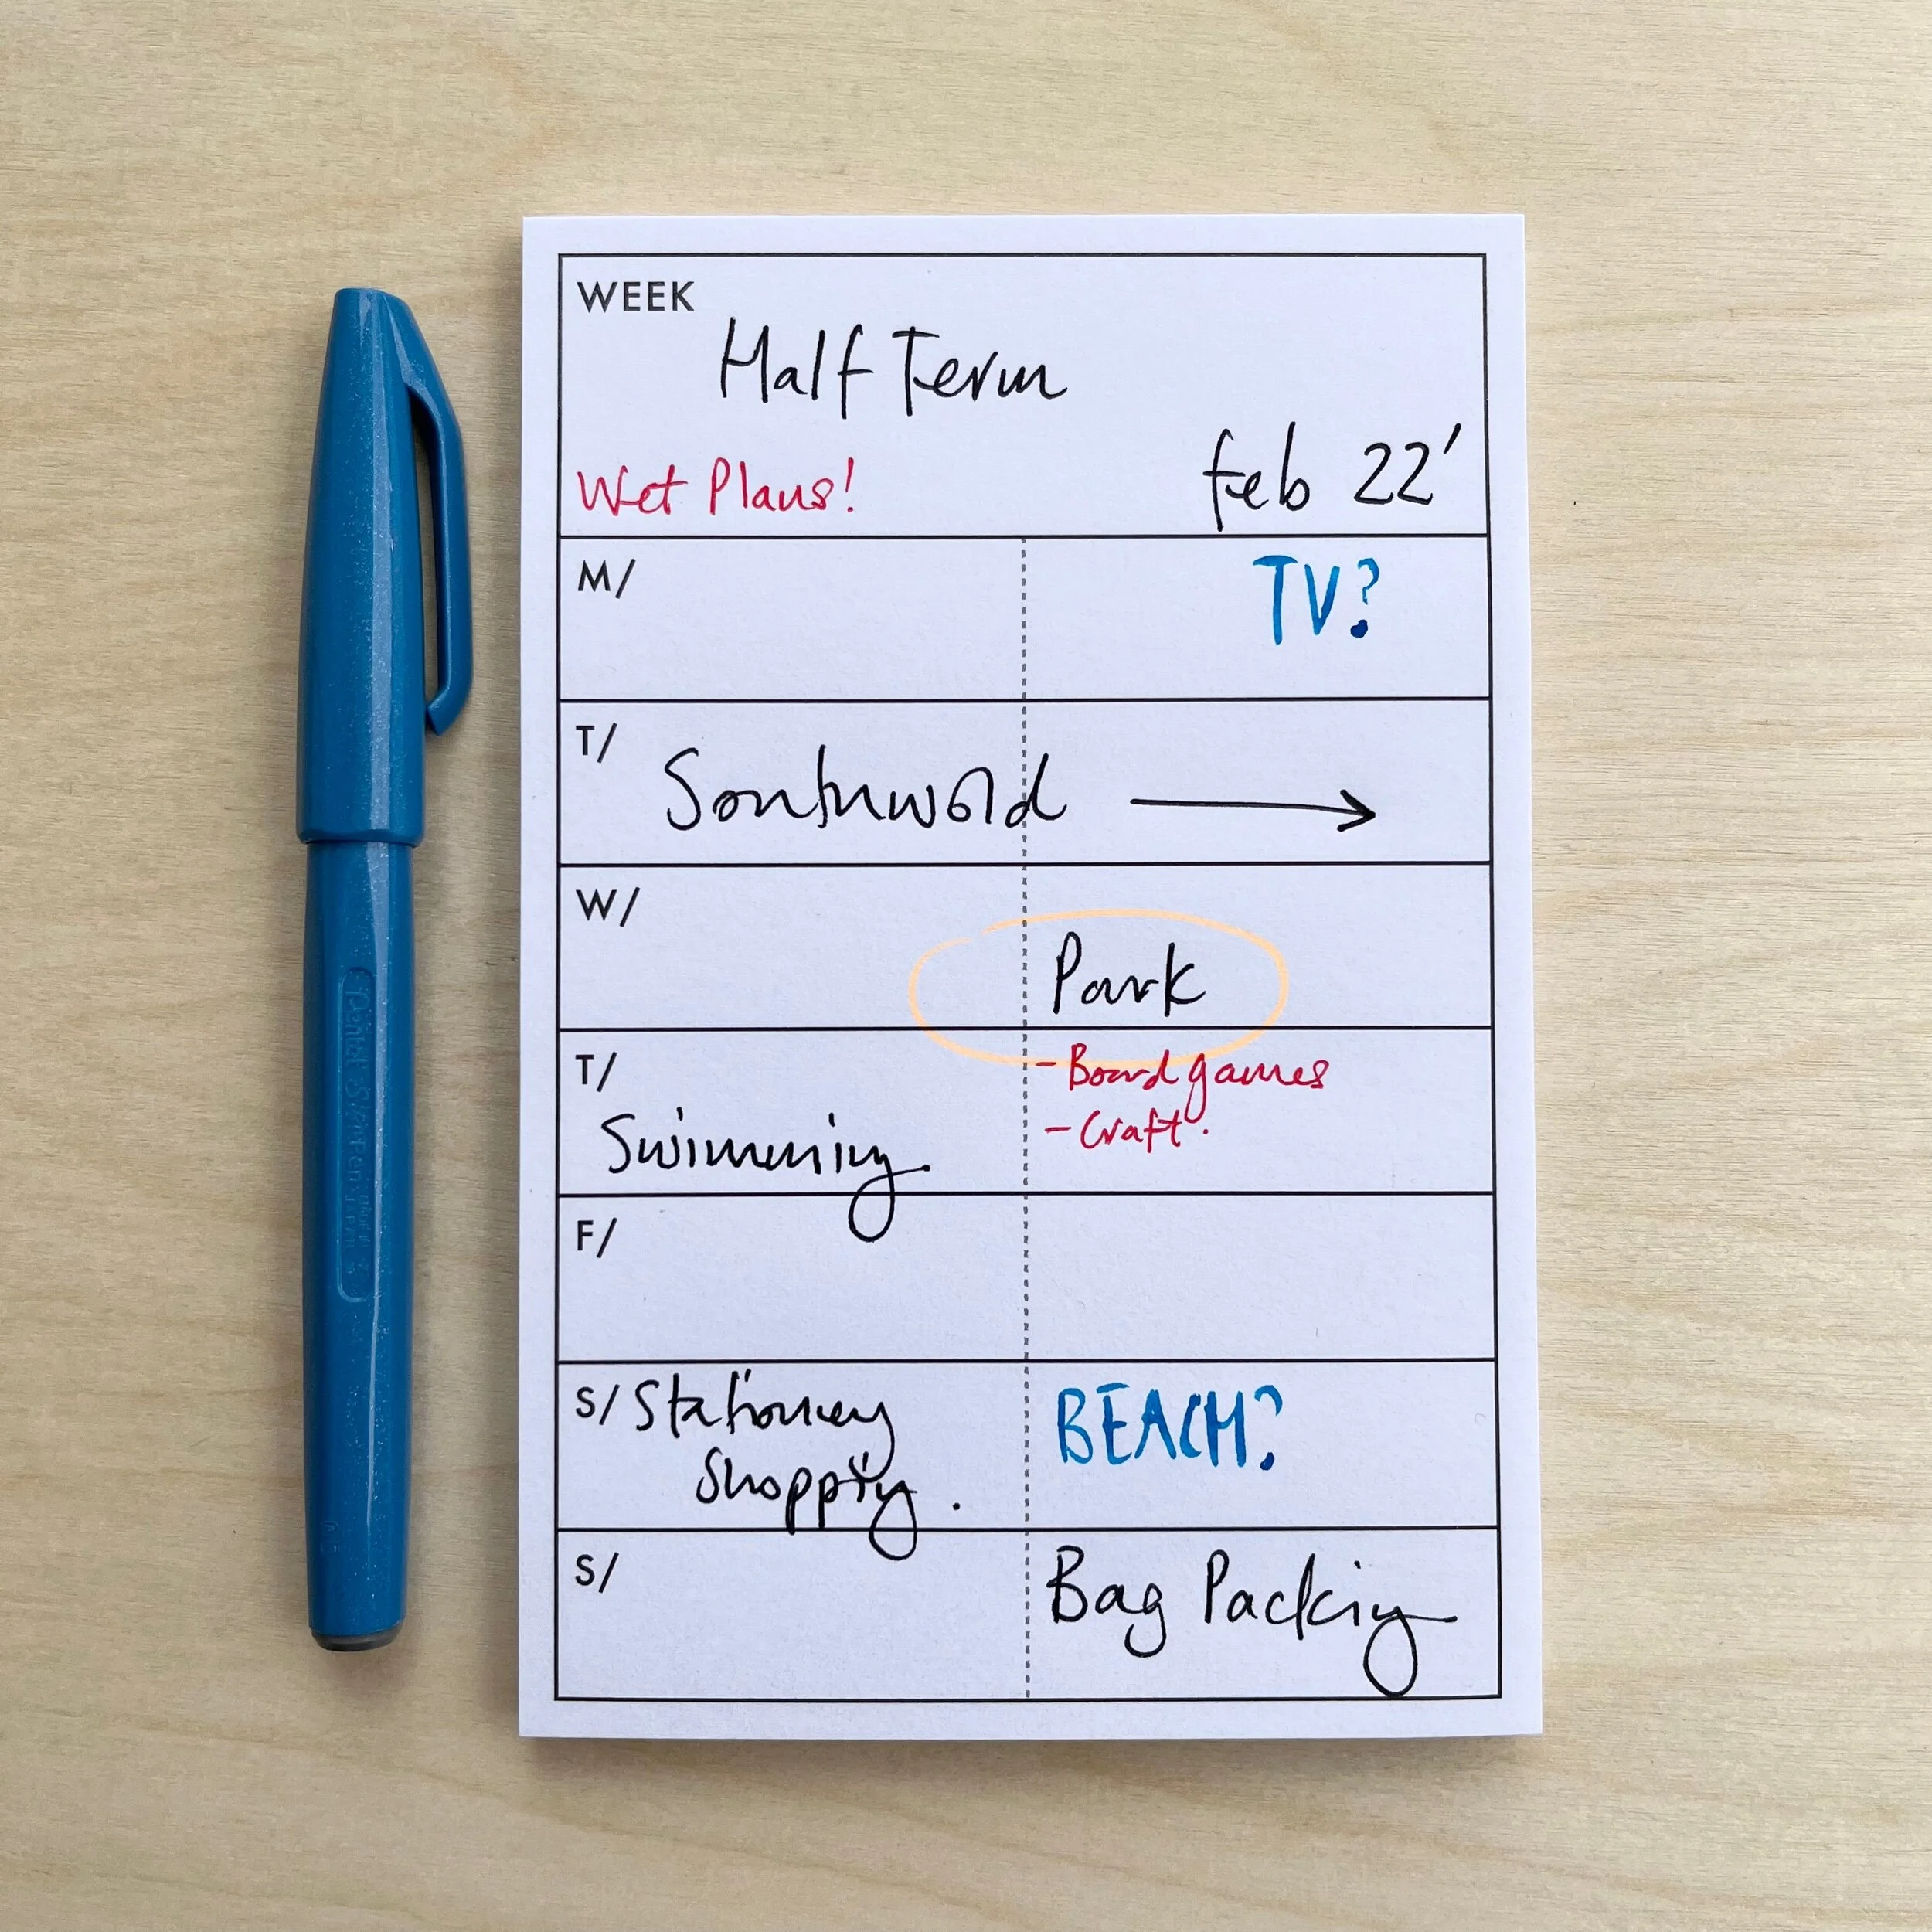 WEEK
Half Term
feb 22'
Wet Plans!
M/
TV?
T/
Southwold →
W/
Park
T/
Swimming.
- Board games
- Craft.
F/
S/ Stationery
Shopping.
BEACH?
S/
Bag Packing
Pentel Sign Pen